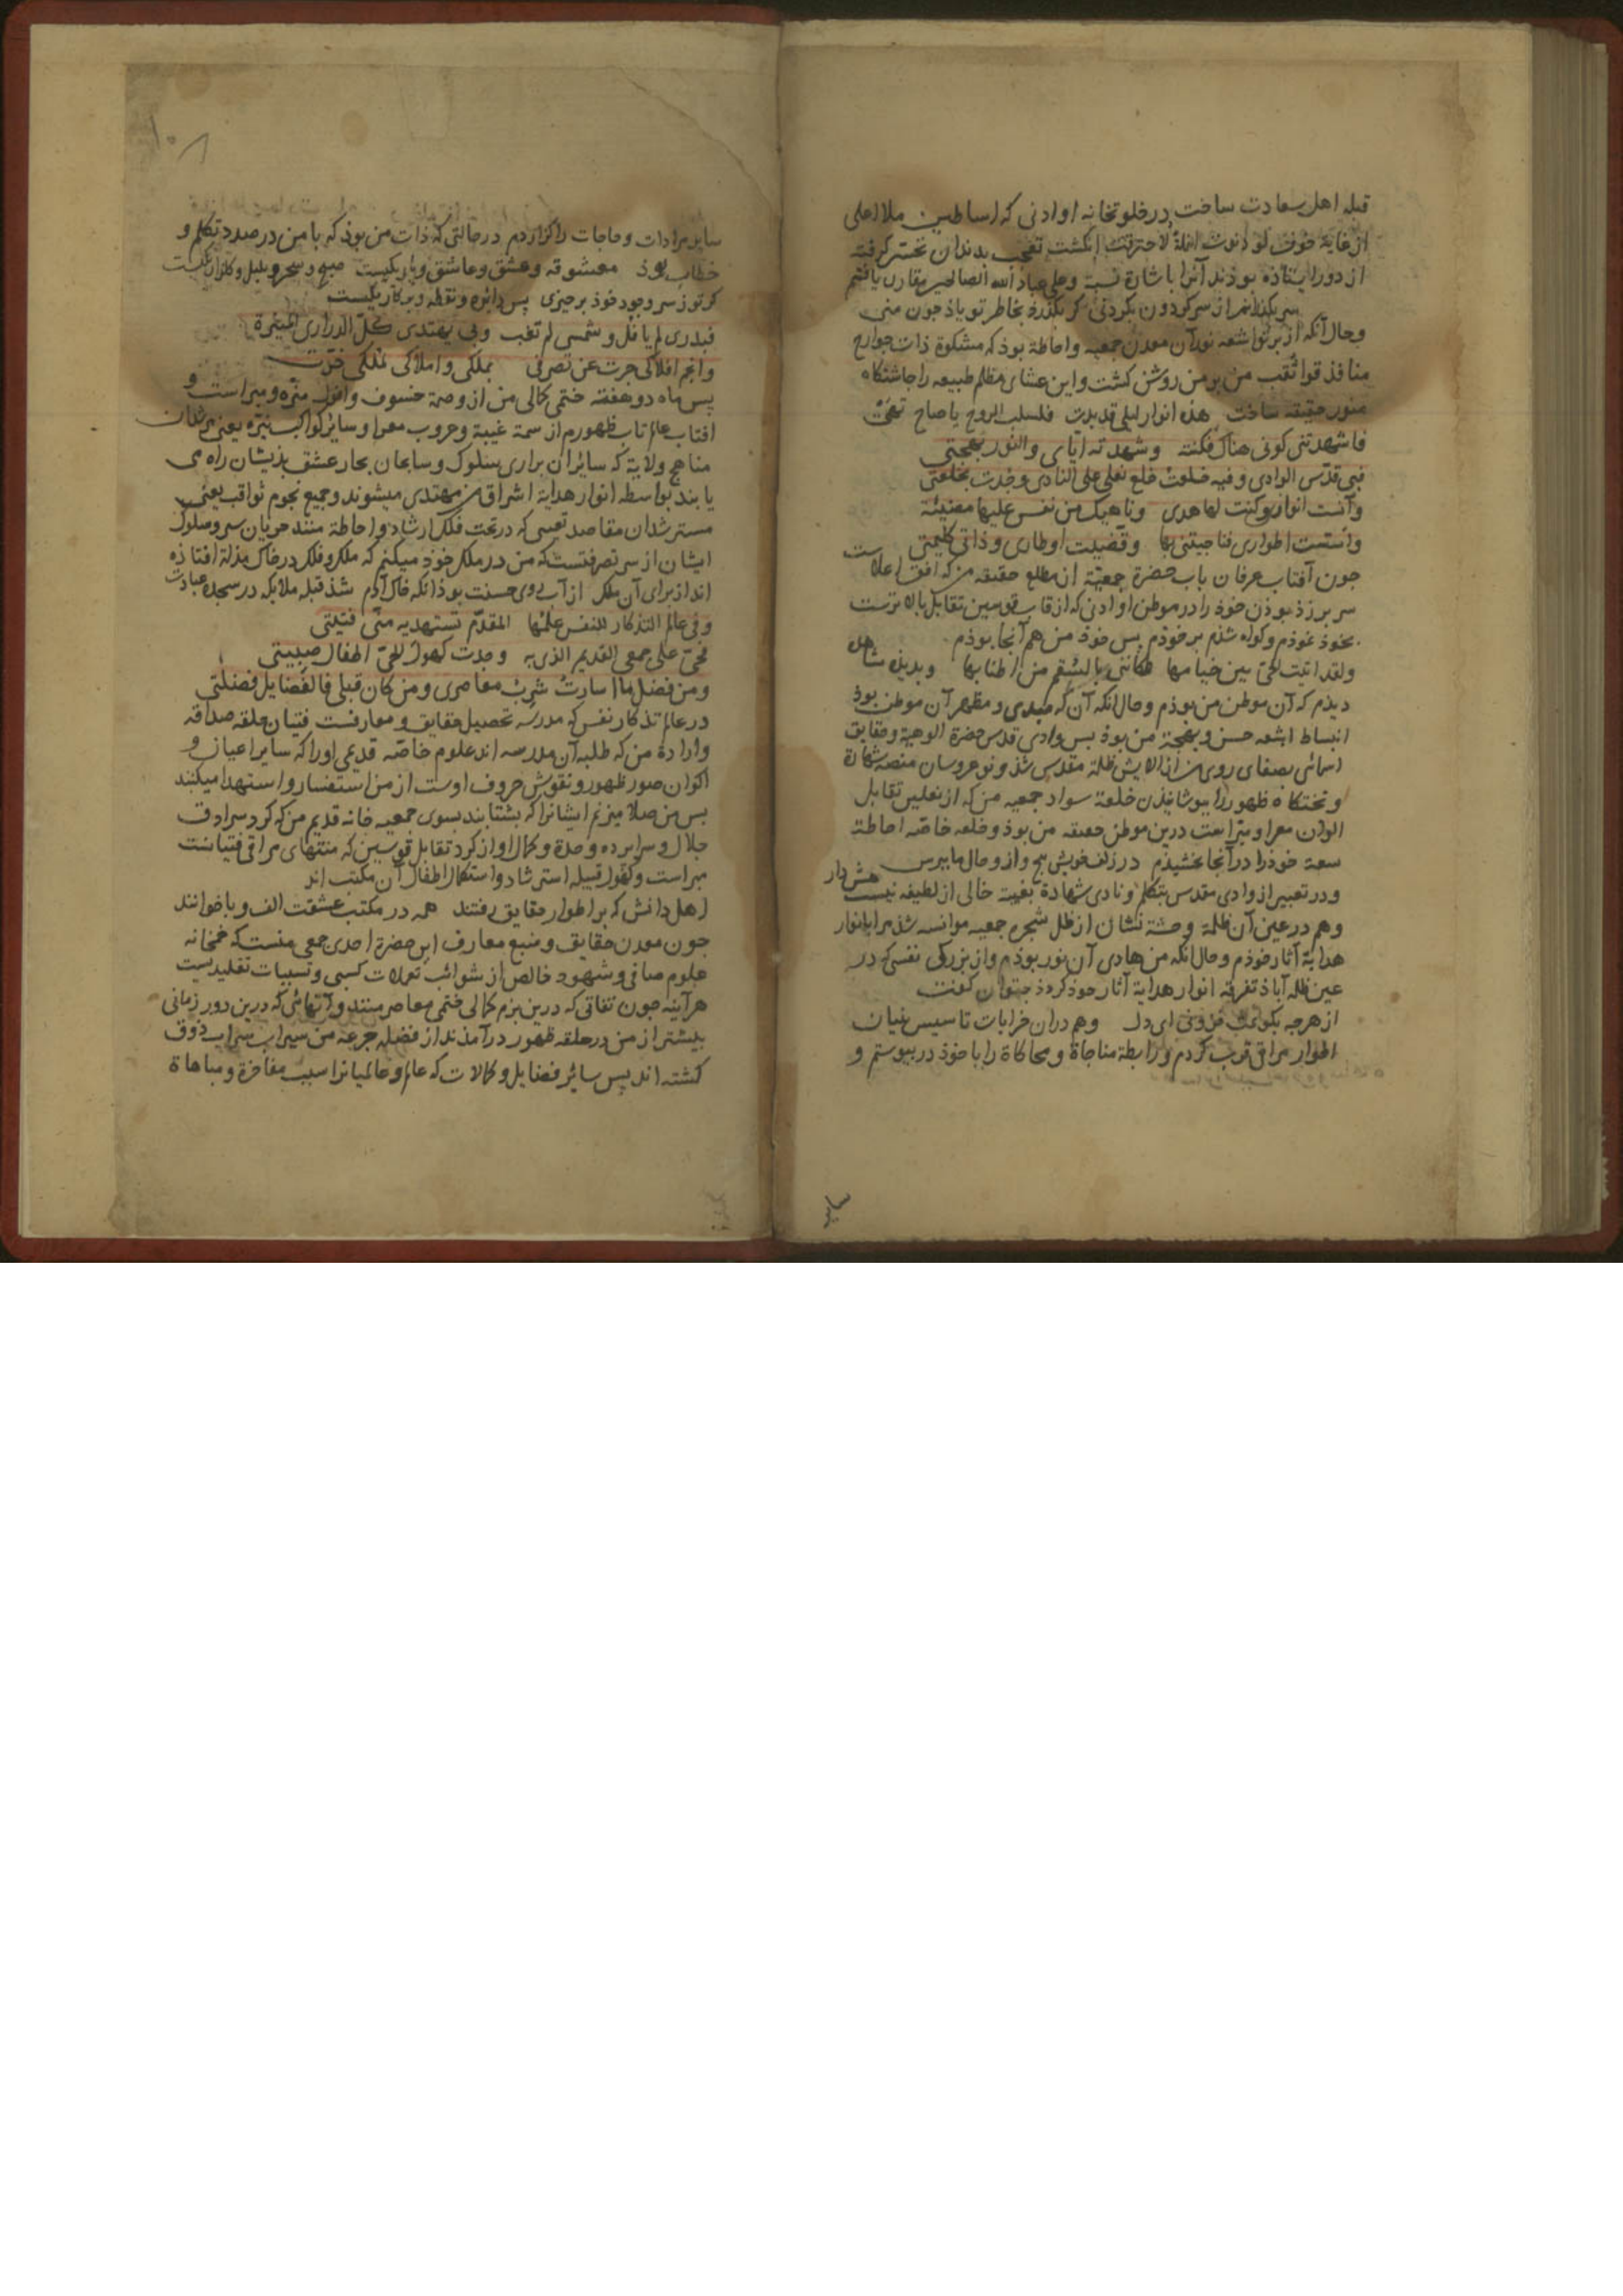 قبله اهل سعادت ساخت در خلوتخانه او ادنی که اساطین ملا اعلی
از غایة خوف لو دنوت انملة لاحترقت انکشت تعجب بدندان تحسر کرفته
از دور ایستاذه بوذند آنرا باشارة نسبة وعلی عباد الله الصالحین مقارن یافتم
سر بکذرانم از سر کردون بکردنی کر بکذرد بخاطر تو یاذ جون منی
وحال آنکه از برتو اشعه نور آن معدن جمعیه واحاطة بوذ که مشکوة ذات جوارح
منافذ قوا ثقب من بر من روشن کشت واین عشای مظلم طبیعه را جاشتکاه
منور حقیقه ساخت هذه انوار لیلی قد بدت فلسلب الروح یا صاح
فاشهدتنی کونی هناک فکنته وشهدته ایای والنور بهجتی
فبی قدس الوادی وفیه خلعت خلع نعلی علی النادی وجدت بخلعتی
وآنست انواری وکنت لها هدی وناهیک من نفس علیها مضیئة
واسست اطواری فناجیتنی بها وقضیت اوطاری وذاتی کلیمتی
جون آفتاب عرفان باب حضرة جمعیة از مطلع حقیقه من که افق اعلاست
سر بر زذ بوذن خوذ را در موطن او ادنی که از قاب قوسین تقابل بالاترست
بخوذ نموذم وکواه شذم بر خوذم پس خوذ من هم آنجا بوذم
ولقد اتیت الحی بین خیامها فکاننی بالسقم من اطنابها وبدیذه شاهد
دیذم که آن موطن من بوذم وحال آنکه آن که مبدی ومظهر آن موطن بوذ
انبساط اشعه حسن وبهجة من بوذ بس وادی قدس حضرة الوهیة وحقایق
اسمائی بصفای روی من از الایش ظلة مقدس شذ ونوعروسان منصه شهادة
وتختکاه ظهور را بپوشانیذن خلعة سواد جمعیه من که از نعلین تقابل
الوان معرا ومبراست درین موطن حقیقه من بوذ وخلعه خاصه احاطة
سعة خوذ را در آنجا بخشیذم در زلف خویش پیچ وازو حال ما بپرس هش دار
ودر تعبیر از وادی مقدس بتکلم ونادی شهادة بغیبة خالی از لطیفه نیست
وهم در عین آن ظلمة وحشة نشان از ظل شجره جمعیه موانسه شذ مرا بانوار
هدایة آثار خوذم وحال آنکه من هادی آن نور بوذم واز بزرکی نفسی که در
عین ظله آباذ تفرقه انوار هدایة آثار خوذ کرده ذ جتوان کفت
از هرجه بکویمت فزونی ای دل وهم در ان خرابات تاسیس بنیان
اطوار مراقی قرب کردم ورابطة مناجاة ومحاکاة را با خوذ در بیوستم و
۱۰۸
سایر مرادات وحاجات را کزاردم در حالتی که ذات من بوذ که با من در صدد تکلم و
خطاب بوذ معشوقه وعشق وعاشق ویار یکیست صبح وسحر وبلبل وکلزار یکیست
کر تو ز سر وجود خوذ برخیزی پس دایره ونقطه وپرکار یکیست
فبدری لم یافل وشمسی لم تغب وبی یهتدی کل الدراری المنیرة
وانجم افلاکی جرت عن تصرفی بملکی واملاکی لملکی خرت
پس ماه دو هفته ختمی کمالی من از وصمة خسوف وافول منزه ومبراست و
افتاب عالم تاب ظهورم از سمة غیبة وغروب معرا وسایر کواکب نیره یعنی مرشدان
مناهج ولایة که سایران براری سلوک وسابحان بحار عشق بذیشان راه می
یابند بواسطه انوار هدایة اشراق من مهتدی میشوند وجمیع نجوم ثواقب یعنی
مسترشدان مقاصد تعبیبی که در تحت فلک ارشاد واحاطة منند جریان سیر وسلوک
ایشان از سر تصرفتست که من در ملک خوذ میکنم که ملک وفلک در خاک مذلة افتاذه
اند از برای آن ملک از آب روی حسنت بوذ انکه خاک آدم شذ قبله ملایکه در سجده عبادت
وفی عالم التذکار للنفس علمها المقدم تستهدیه منی فتیتی
فحی علی جمعی القدیم الذی به وجدت کهول الحی اطفال صبیتی
ومن فضل ما اسارت شرب معاصری ومن کان قبلی فالفضایل فضلتی
در عالم تذکار نفس که مدرسه تحصیل حقایق ومعارفست فتیان حلقه صداقه
وارادة من که طلبه آن مدرسه اند علوم خاصه قدیمی اورا که سایر اعیان و
اکوان صور ظهور ونقوش حروف اوست از من استفسار واستهدا میکنند
بس من صلا میزنم ایشانرا که بشتابند بسوی جمعیه خانه قدیم من که کرد سرادق
جلال وسرابرده وحدة وکمال او از کرد تقابل قوسین که منتهای مراقی فتیانست
مبراست وکهول قبیله استرشاد واستکمال اطفال آن مکتب اند
اهل دانش که بر اطوار حقایق رفتند همه در مکتب عشقت الف وبا خوانند
جون معدن حقایق ومنبع معارف این حضرة احدی جمعی منست که خمخانه
علوم صافی وشهود خالص از شوائب تعملات کسبی وتسبیبات تقلیدیست
هر آینه جون ثقاتی که درین بزم کمالی ختمی معاصر منند وآنهائی که درین دور زمانی
بیشتر از من در حلقه ظهور در آمذند از فضله جرعه من سیراب شراب ذوق
کشته اند پس سائر فضایل وکمالات که عالم وعالمیانرا سبب مفاخرة ومباهاة
سایر